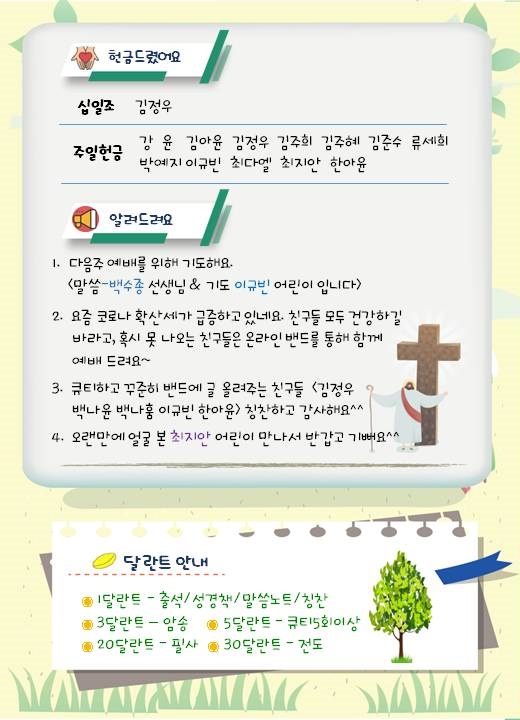 헌금드렸어요
십일조 김정우
주일헌금 강 윤 김아윤 김정우 김주희 김주혜 김준수 류세희
박예지 이규빈 최다엘 최지안 한아윤
알려드려요
1. 다음주 예배를 위해 기도해요.
<말씀-백수종 선생님 & 기도 이규빈 어린이 입니다>
2. 요즘 코로나 확산세가 급증하고 있네요. 친구들 모두 건강하길
바라고, 혹시 못 나오는 친구들은 온라인 밴드를 통해 함께
예배 드려요~
3. 큐티하고 꾸준히 밴드에 글 올려주는 친구들 <김정우
백나윤 백나훔 이규빈 한아윤> 칭찬하고 감사해요^^
4. 오랜만에 얼굴 본 최지안 어린이 만나서 반갑고 기뻐요^^
달란트 안내
1달란트 - 출석/성경책/말씀노트/칭찬
3달란트 - 암송 5달란트 - 큐티5회이상
20달란트 - 필사 30달란트 - 전도